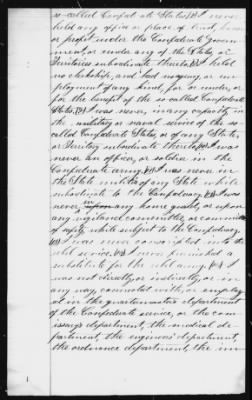 so-called Confederate States; I never
held any office or place of trust, honor
or profit under the Confederate Govern-
ment, or under any of the States, or
Territories subordinate thereto; I held
no clerkship, and had no agency, or em-
ployment of any kind, for or under, or
for the benefit of the so-called Confederate
States; I was never, in any capacity in
the military or naval service of the so-
called Confederate States, or of any State,
or Territory subordinate thereto; I was
never an officer, or soldier in the
Confederate army; I was never in
the State militia of any State while
subordinate to the Confederacy; I was
never in any home guards, or upon
any vigilance committee, or committee
of safety while subject to the Confederacy;
I was never conscripted into the
rebel service; I never furnished a
substitute for the rebel army; I
was not directly, or indirectly, or in
any way, connected with, or employ-
ed in the quartermaster's department
of the Confederate service, or the com-
issary's department, the medical de-
partment, the engineer's department,
the ordnance department, the im-